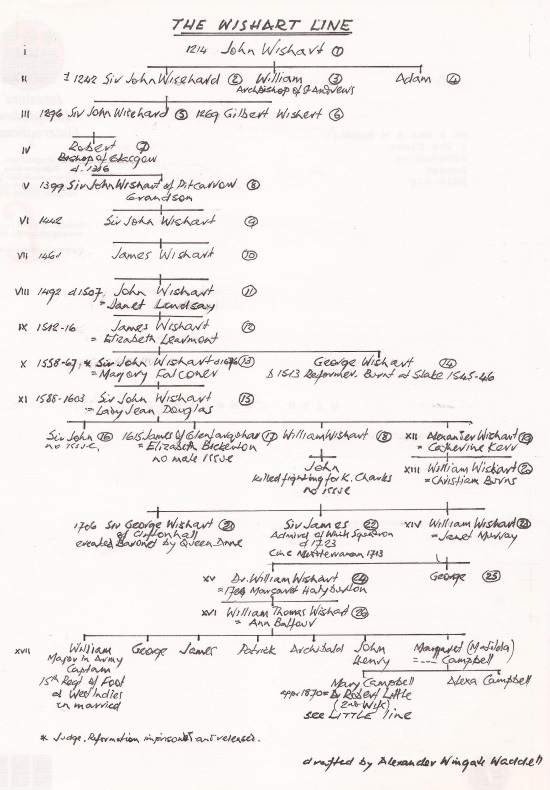 THE WISHART LINE
i 1214 John Wishart 1
II ± 1242 Sir John Wisehard 2 William 3 Adam 4
Archbishop of St Andrews
III 1296 Sir John Wisehard 5 1269 Gilbert Wishert 6
IV Robert 7
Bishop of Glasgow
d. 1316
V 1399 Sir John Wishart of Pitcarrow 8
Grandson
VI 1442 Sir John Wishart 9
VII 1461 James Wishart 10
VIII 1492 d 1507 John Wishart 11
= Janet Lindsay
IX 1512-16 James Wishart 12
= Elizabeth Learmont
X 1558-67 * Sir John Wishart d 1576 13 George Wishart 14
= Marjory Falconer b 1513 Reformer. Burnt at Stake 1545-46
XI 1585-1603 Sir John Wishart 15
= Lady Jean Douglas
Sir John 16 1615 James of Glenfarquhar 17 William Wishart 18 XII Alexander Wishart 19
no issue = Elizabeth Bickerton = Catherine Kerr
no male issue John XIII William Wishart 20
killed fighting for K. Charles = Christiam Burns
no issue
1706 Sir George Wishart 21 Sir James 22 XIV William Wishart 23
of Cliftonhall Admiral of White Squadron = Janet Murray
created Baronet by Queen Anne d 1723
C in C Mediterranean 1713
XV Dr. William Wishart 24 George 25
= 1724 Margaret Halyburton
XVI William Thomas Wishart 26
= Ann Balfour
XVII William George James Patrick Archibald John Margaret (Matilda)
Major in Army Henry = --- Campbell
Captain
15th Regt of Foot Mary Campbell Alexa Campbell
d West Indies apr 1870 = Dr Robert Little
unmarried (2nd Wife)
see LITTLE line
* Judge. Reformation imprisoned and released.
drafted by Alexander Wingate Waddell